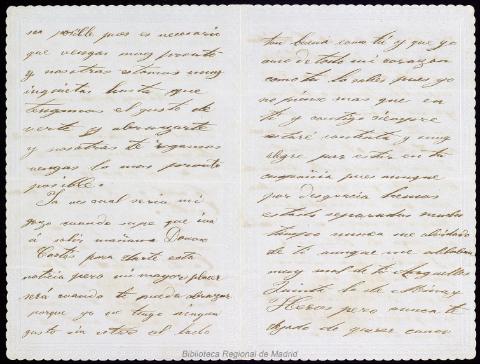 sea posible pues es necesario
que vengas muy pronto
y nosotras estamos muy
inquietas hasta que
tengamos el gusto de
verte y abrazarte
y nosotras te rogamos
vengas lo mas pronto
posible.
Ya ves cual seria mi
gozo cuando supe que iva
á salir mañana Donna
para darte esta
noticia pero mi mayor placer
será cuando te pueda abrazar
porque yo no tengo ningun
gusto sin estar al lado
tan buena como tú y que yo
amo de todo mi corazon
como tu lo sabes pues yo
no pienso mas que en
ti y contigo siempre
estaré contenta y muy
alegre por estar en tu
compañia pues aunque
por desgracia hemos
estado separadas mucho
tiempo nunca me olvidado
de ti aunque me hablaban
muy mal de ti Arguelles
la de Mina y
Heros pero nunca te
dejado de querer como
Biblioteca Regional de Madrid